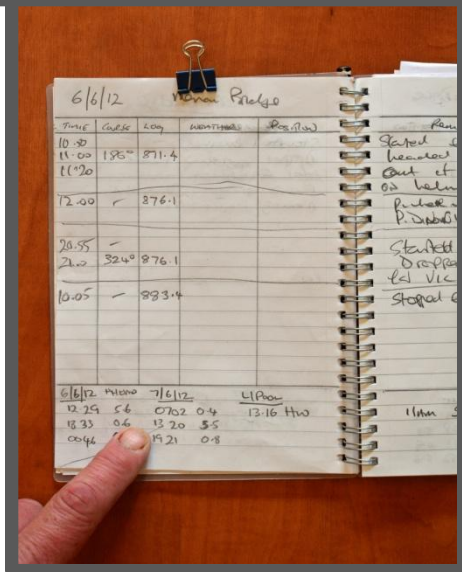 6/6/12 Bridge
TIME COURSE LOG WEATHER POSITION
10.30
11.00 186° 871.4
11.20
12.00 - 876.1
20.55 -
21.0 324° 876.1
10.05 - 883.4
6/6/12 7/6/12 L/Pool
12.29 5.6 0702 0.4 13.16 HW
18.33 0.6 13 20 5.5
0046 19 21 0.8
Started
headed
out of
on helm
Started
Dropped
Stopped
11am